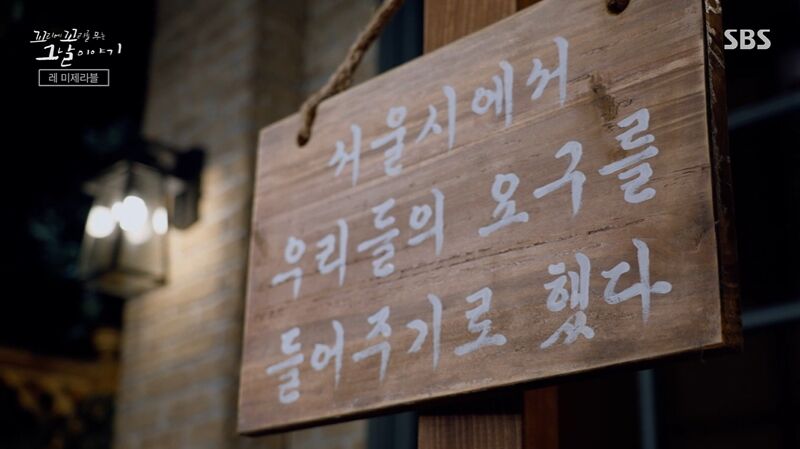 꼬리에 꼬리를 무는
그날 이야기
레 미제라블
SBS
서울시에서
우리들의 요구를
들어주기로 했다